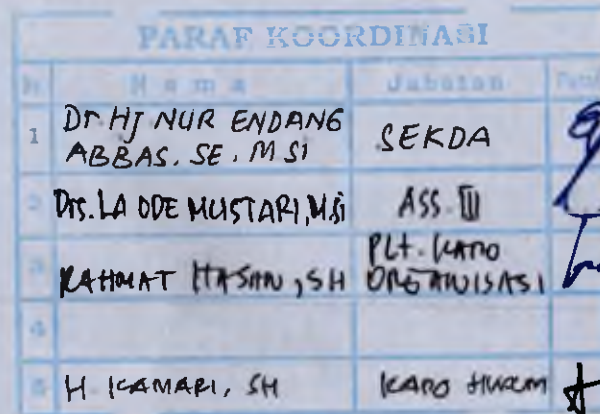 PARAF KOORDINASI
No Nama Jabatan Paraf
1 Dr HJ NUR ENDANG SEKDA
ABBAS. SE. M Si
2 Drs. LA ODE MUSTARI, M.Si ASS. III
3 RAHMAT HASAN, SH PLT. KARO
ORGANISASI
4
5 H KAMARI, SH KARO HUKUM